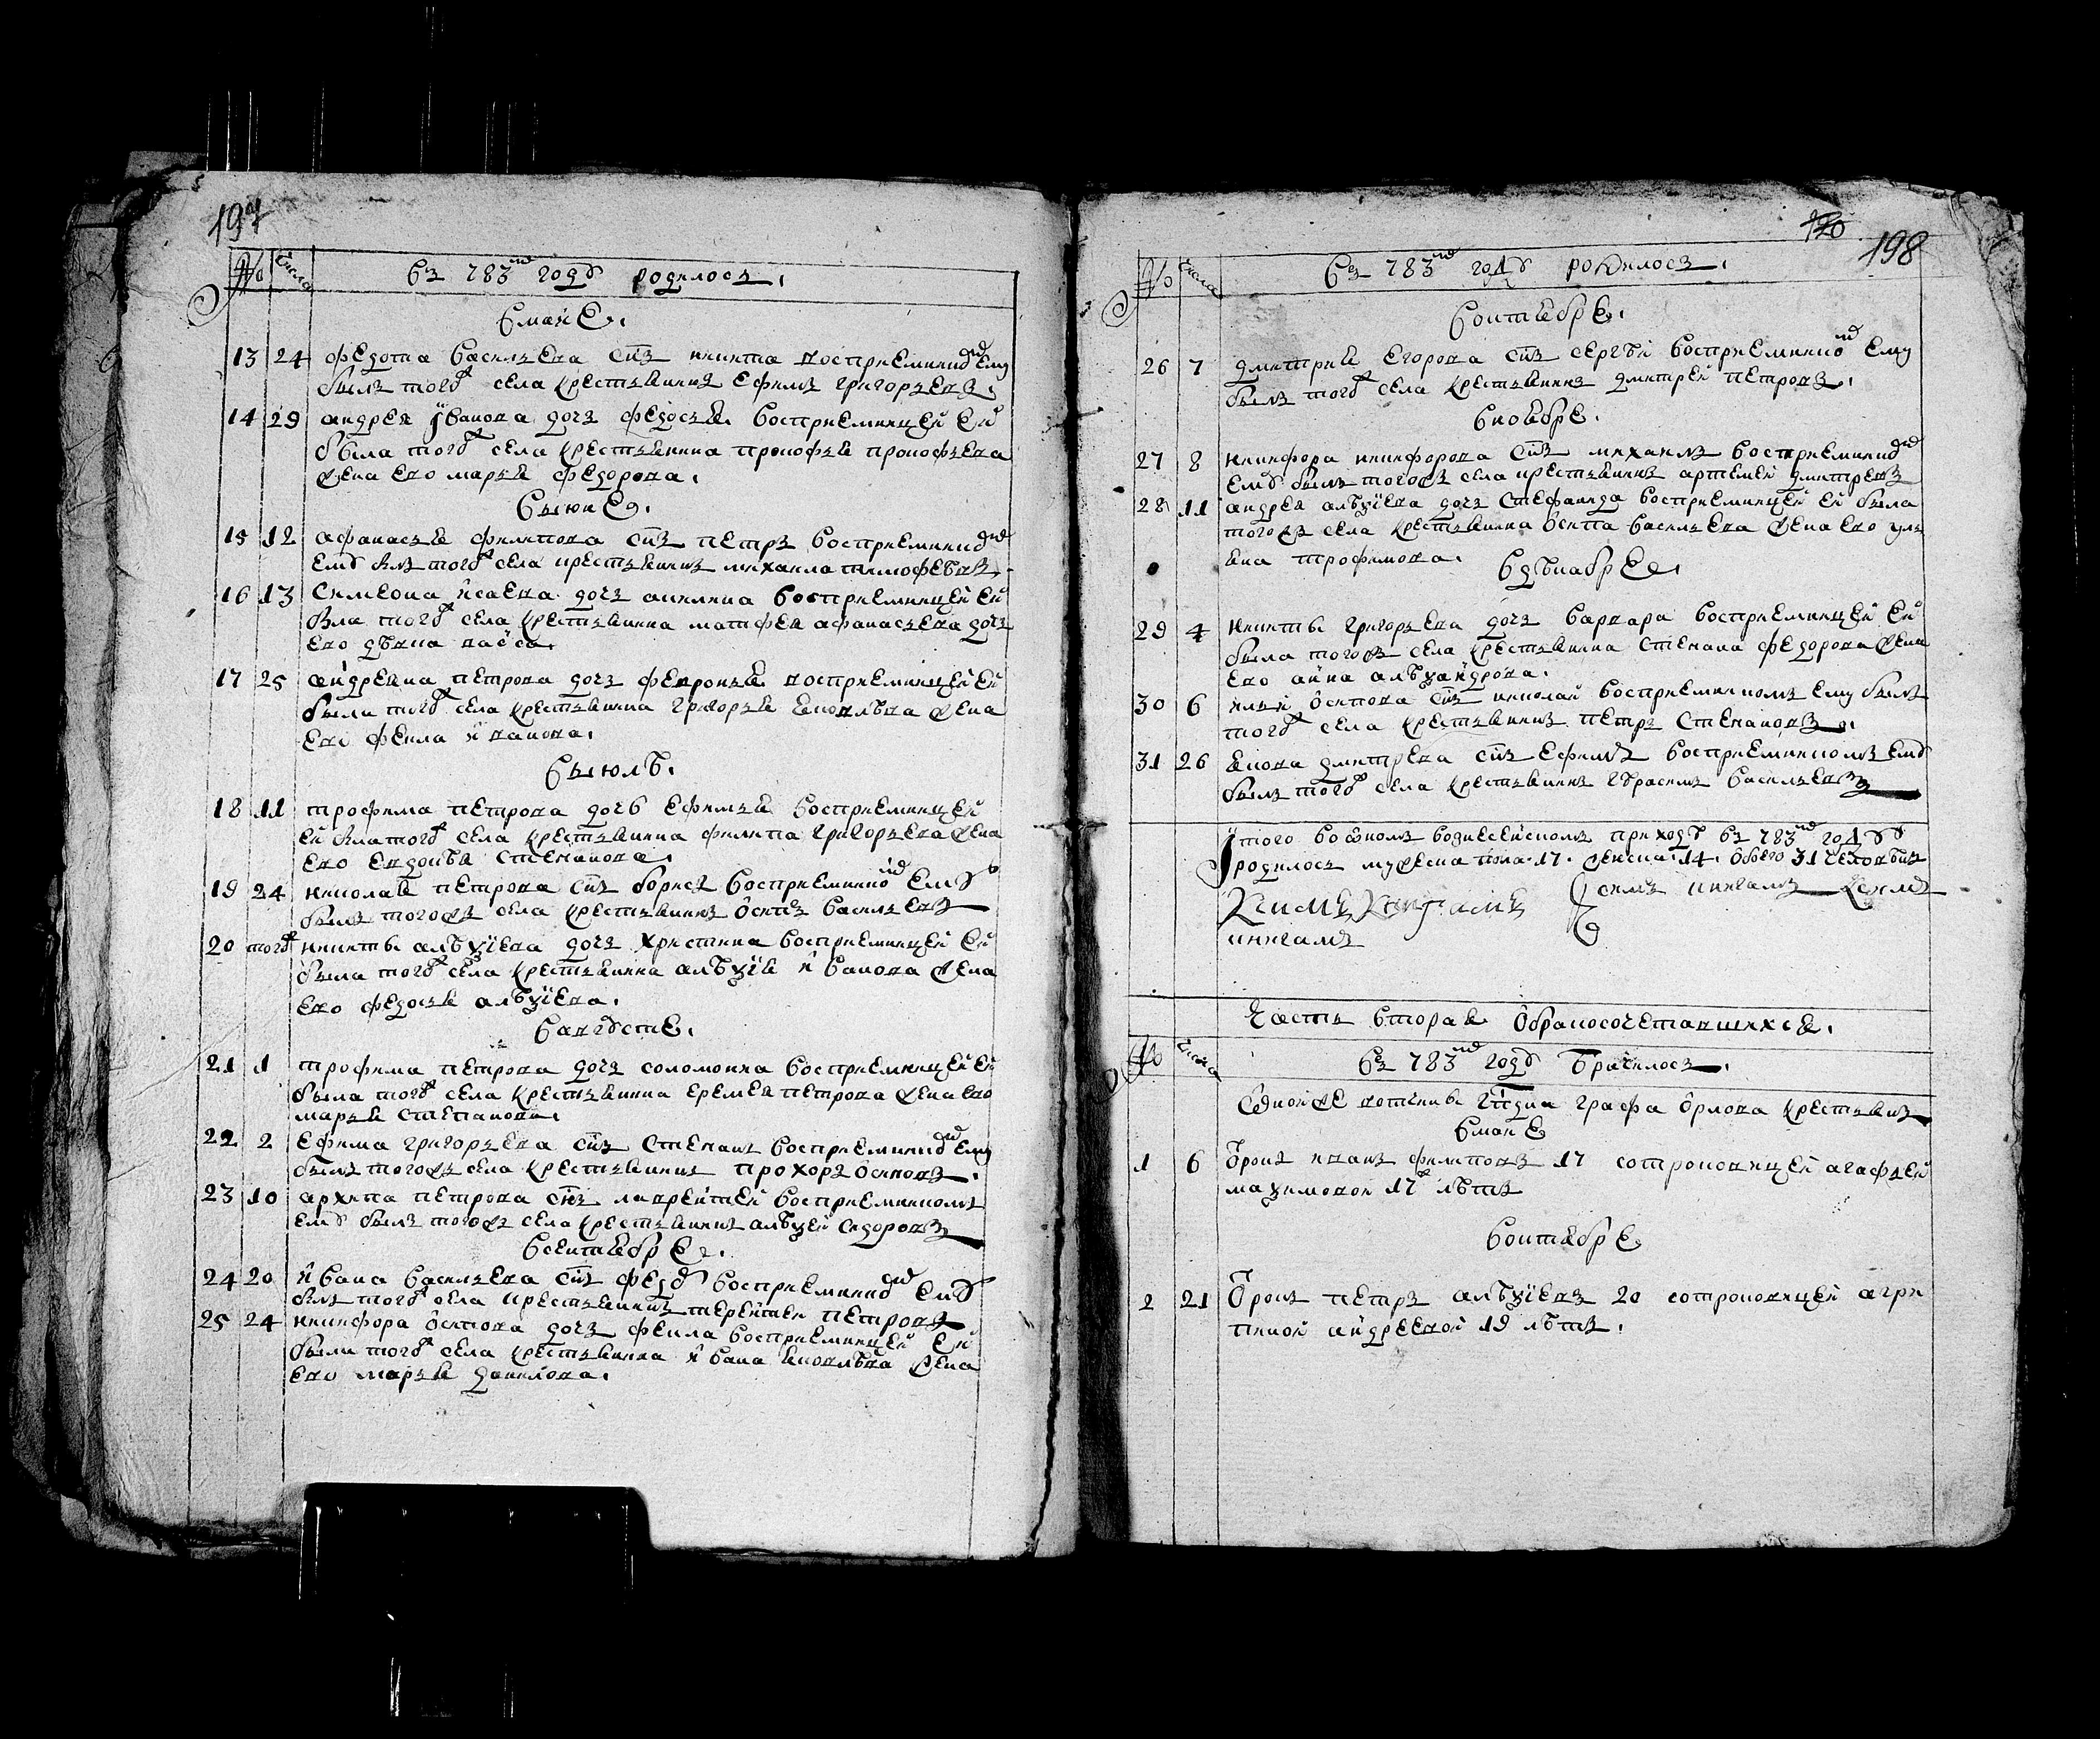 197
№ числа въ 783м году родилось.
в маие.
13 24 федота васильева снъ никита восприемником ему
былъ тогож села крестьянинъ ефимъ григорьевъ.
14 29 андрея иванова дочь федосья восприемницей ей
была тогож села крестьянина прокофья прокофьева
жена ево марья федорова.
в июне.
15 12 афанасья филипова снъ петръ восприемником
ему былъ тогож села крестьянинъ михаила тимофеевъ
16 13 симеона исаева дочь акилина восприемницей ей
была тогож села крестьянина матфея афанасьева дочь
ево девка
17 25 андреяна петрова дочь феврония восприемницей ей
были тогож села крестьянина григорья яковлева жена
ево фекла иванова.
в июле.
18 11 трофима петрова дочь ефимья восприемницей
ей была тогож села крестьянина филипа григорьева жена
ево евдокея степанова.
19 24 николая петрова снъ борисъ восприемником ему
былъ тогожъ села крестьянинъ осипъ васильевъ
20 тогож никиты алѣѯіева дочь христина восприемницей ей
была тогож села крестьянина алѣѯія иванова жена
ево федосья алѣѯіева.
в августе.
21 1 трофима петрова дочь соломонида восприемницей ей
была тогож села крестьянина еремея петрова жена ево
марья степанова.
22 2 ефима григорьева снъ степанъ восприемником ему
былъ тогожъ села крестьянинъ прохоръ осиповъ.
23 10 архипа петрова снъ лаврентей восприемникомъ
ему былъ тогожъ села крестьянинъ алѣѯей сидоровъ
в сентябре.
24 20 ивана васильева снъ федор восприемником ему
былъ тогож села крестьянинъ терентеи петровъ
25 24 никифора осипова дочь фекла восприемницей ей
были тогож села крестьянина ивана яковлева жена
ево марья данилова.
120
198
№ числа въ 783м году родилось.
в октябре.
26 7 дмитрия егорова снъ сергѣй восприемником ему
былъ тогож села крестьянинъ дмитрей петровъ.
в ноябре.
27 8 никифора никифорова снъ михаилъ восприемником
ему былъ тогожъ села крестьянинъ артемей дмитревъ
28 11 андрея алѣѯіева дочь стефанида восприемницей ей была
тогожъ села крестьянина осипа васильева жена ево уль
яна трофимова.
в дѣкабре.
29 4 никиты григорьева дочь варвара восприемницей ей
была тогожъ села крестьянина степана федорова жена
ево анна алѣѯандрова.
30 6 ильи осипова снъ николай восприемникомъ ему былъ
тогож села крестьянинъ петръ степановъ.
31 26 якова дмитрева снъ ефимъ восприемникомъ ему
былъ тогож села крестьянинъ гѣрасимъ васильевъ
итого во ономъ вознесенскомъ приходѣ въ 783м году
родилось мужеска пола 17. женска 14. обоего 31 человѣкъ
симъ книгамъ
книгамъ
Часть вторая о бракосочетавшихся.
№ числа въ 783м году брачилось.
вотчины графа орлова крестьянъ
в маие
1 6 отрокъ иванъ филиповъ 17 со отроковицей агафьей
маѯимовой 17 лѣтъ
в октябре
2 21 отрокъ петръ алѣѯіевъ 20 со отроковицей агри
пиной андреевой 19 лѣтъ.